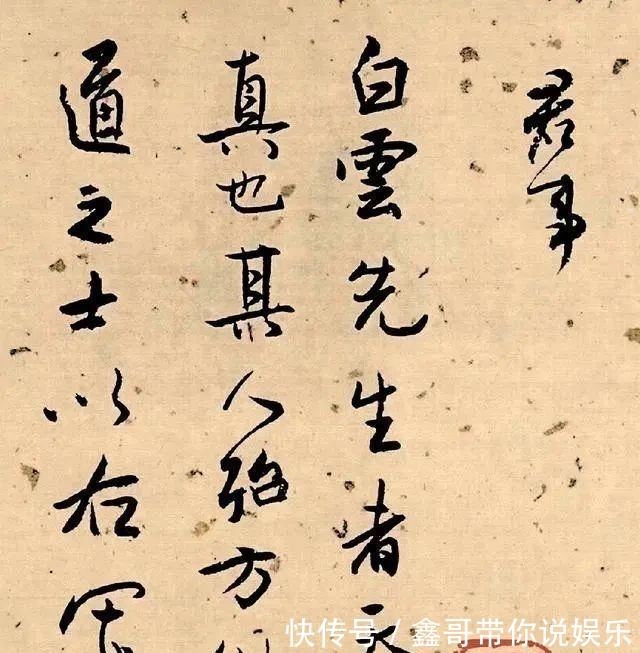 君事
白雲先生者天
真也其人殆方
道之士以右軍
快传号 / 鑫哥带你说娱乐